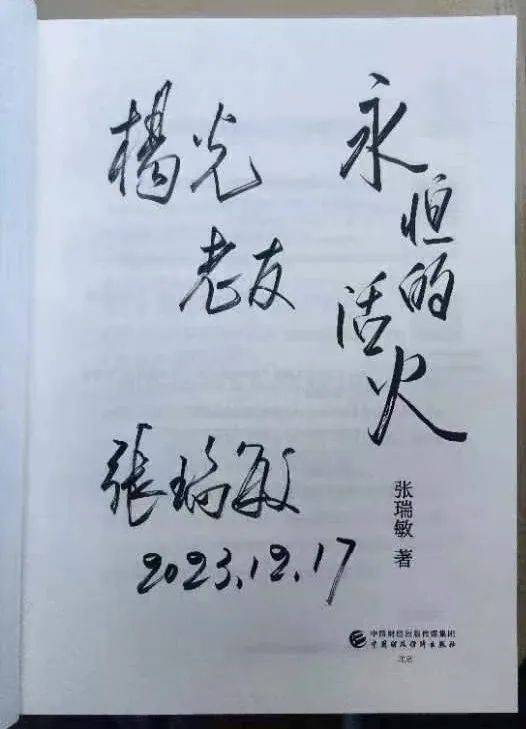 永恒的活火
楊光
老友
張瑞敏
2023.12.17
张瑞敏 著
中国财经出版传媒集团
中国财政经济出版社
北京